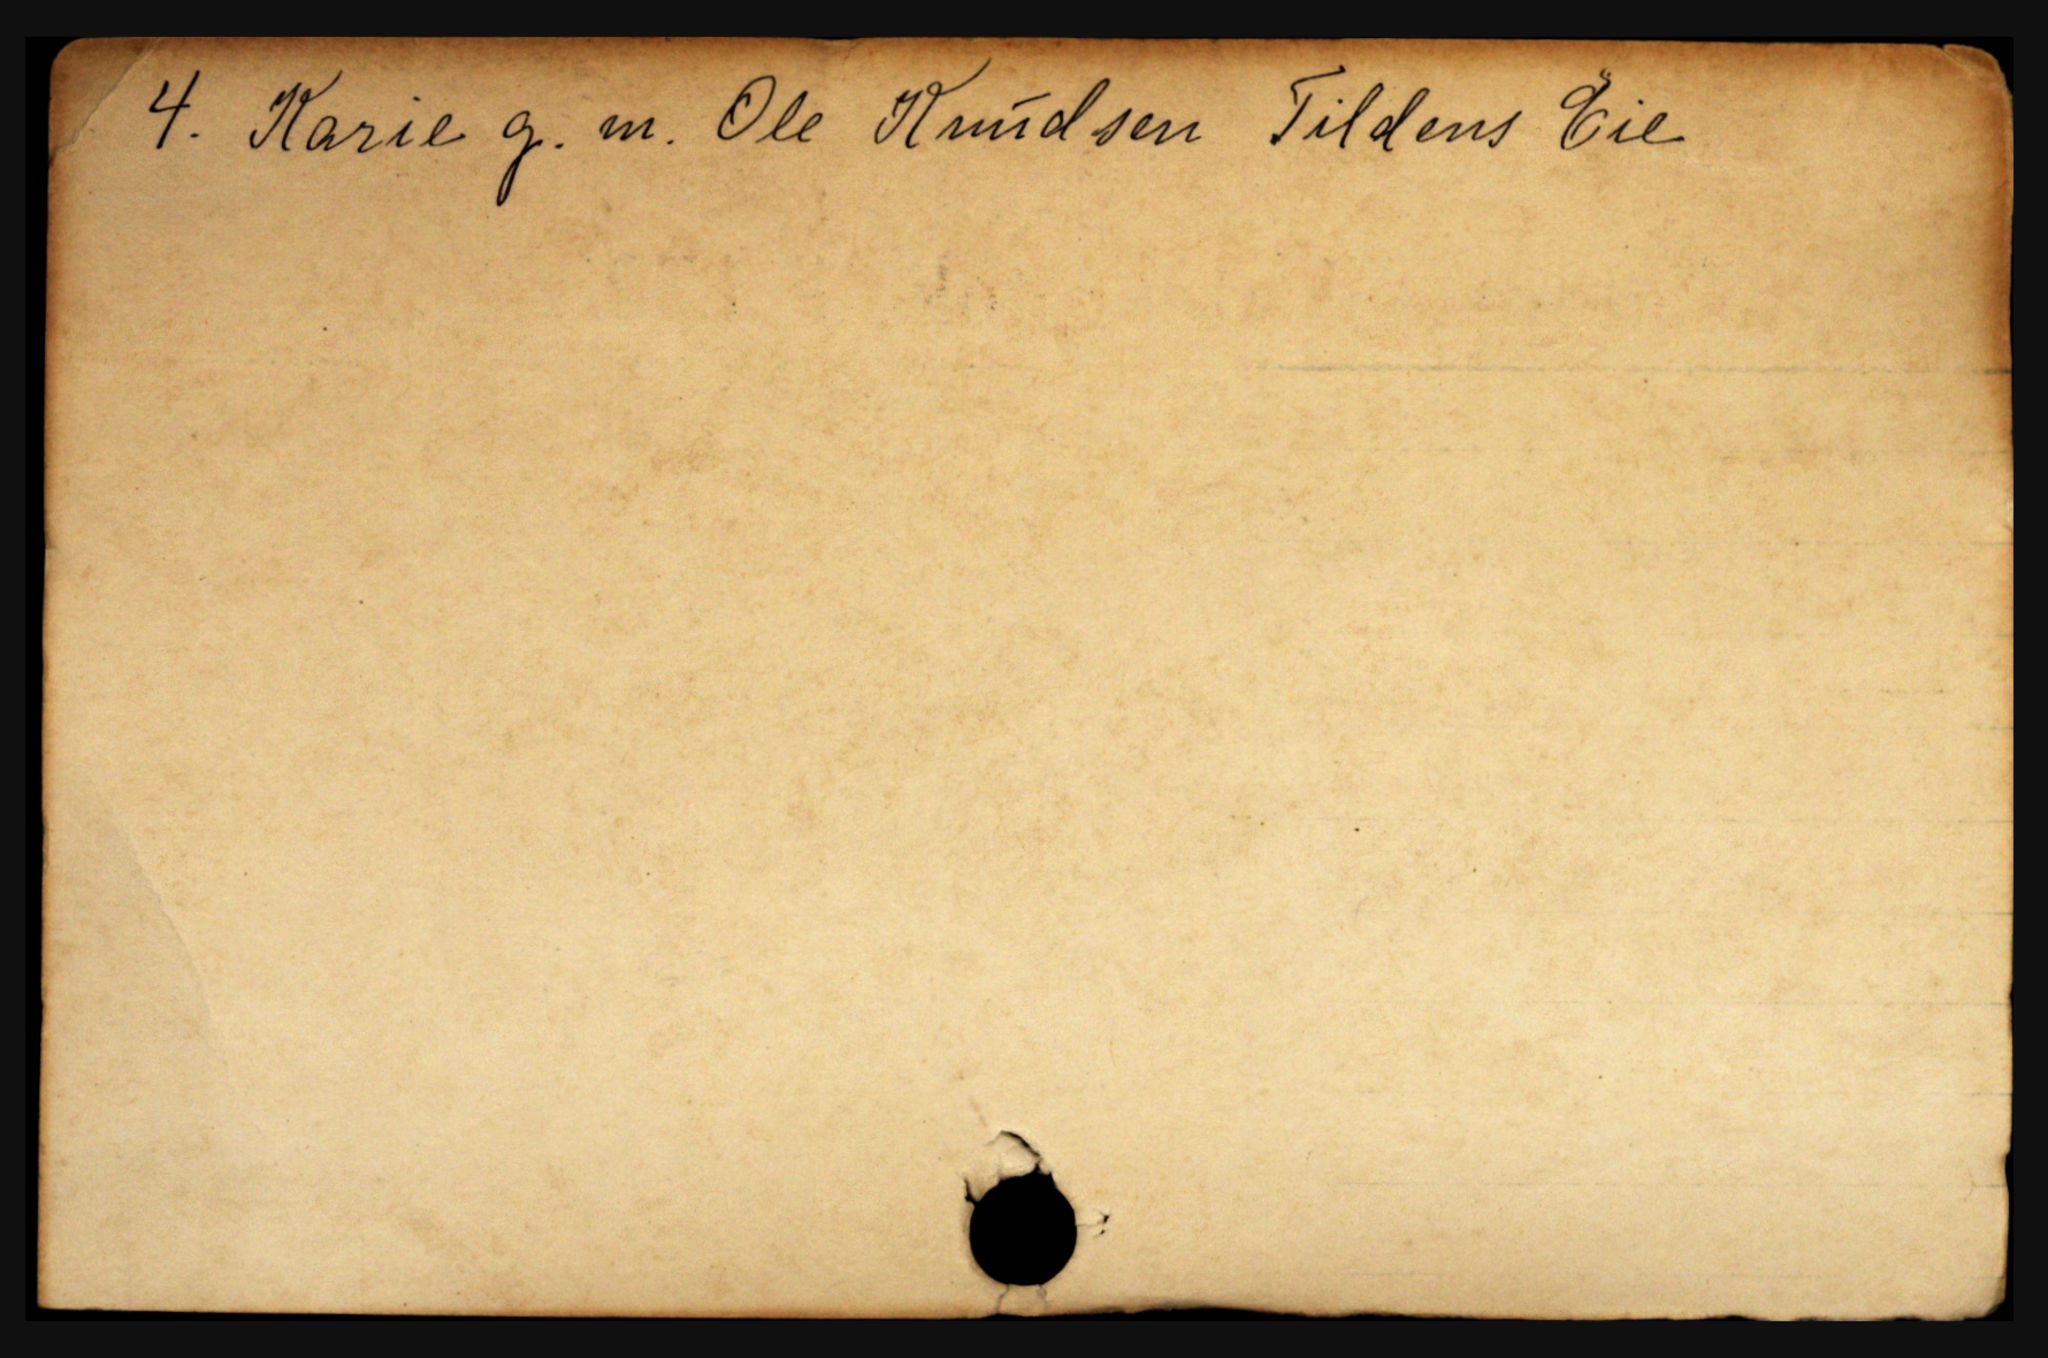 4. Karie g. m. Ole Knudsen Tildens Eie